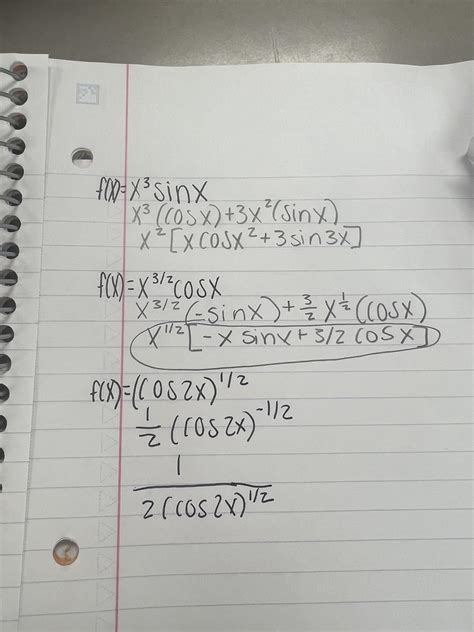 f(x)=x³sinx
x³(cosx)+3x²(sinx)
x²[xcosx²+3sin3x]
f(x)=x^3/2cosx
x^3/2(-sinx)+3/2x^1/2(cosx)
x^1/2[-x sinx+3/2 cosx]
f(x)=(cos2x)^1/2
1/2(cos2x)^-1/2
1
2(cos2x)^1/2